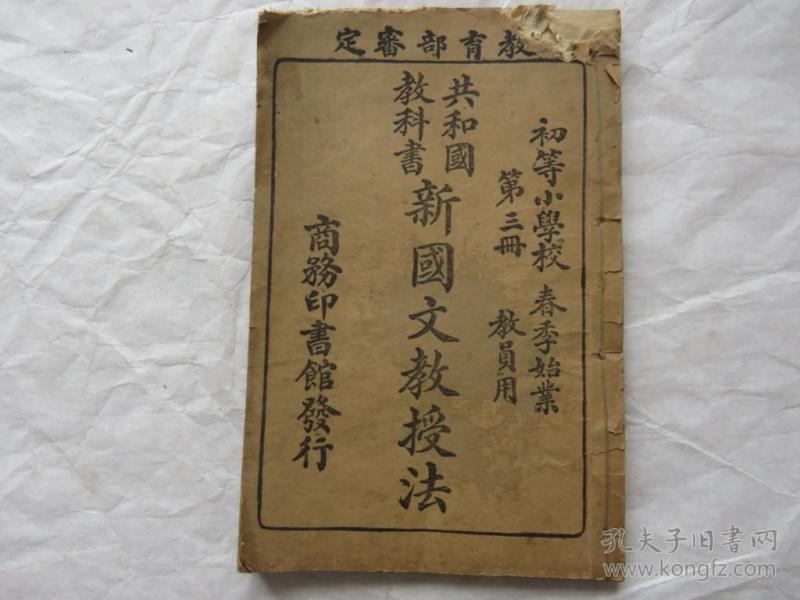 教育部審定
初等小學校 春季始業
第三冊 教員用
共和國
教科書
新國文教授法
商務印書館發行
孔夫子旧书网
www.kongfz.com